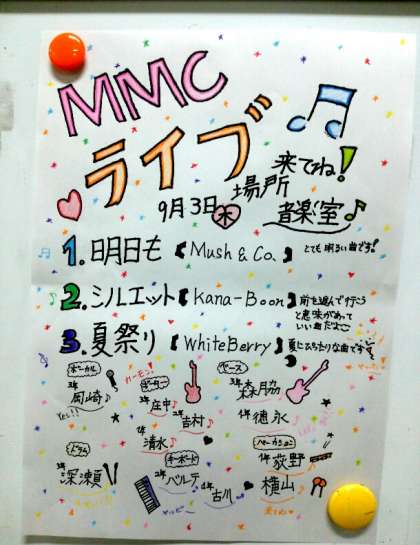 MMC
ライブ
来てね!
9月3日木
場所
音楽室
1. 明日も【Mush & Co.】
とても明るい曲です!
2. シルエット【Kana-Boon】
前を進んで行こう
と意味があって
いい曲だよ
3. 夏祭り【WhiteBerry】
夏にぴったりな曲です
ボーカル
岡崎
ギター
庄中
吉村
清水
ベース
森脇
徳永
ドラム
深瀬
キーボード
バルデ
古川
パーカション
荻野
横山